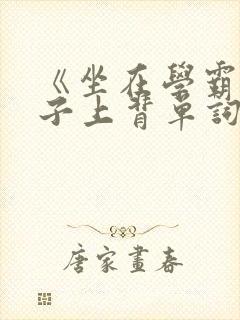 《坐在學霸
子上背單詞
唐家畫春